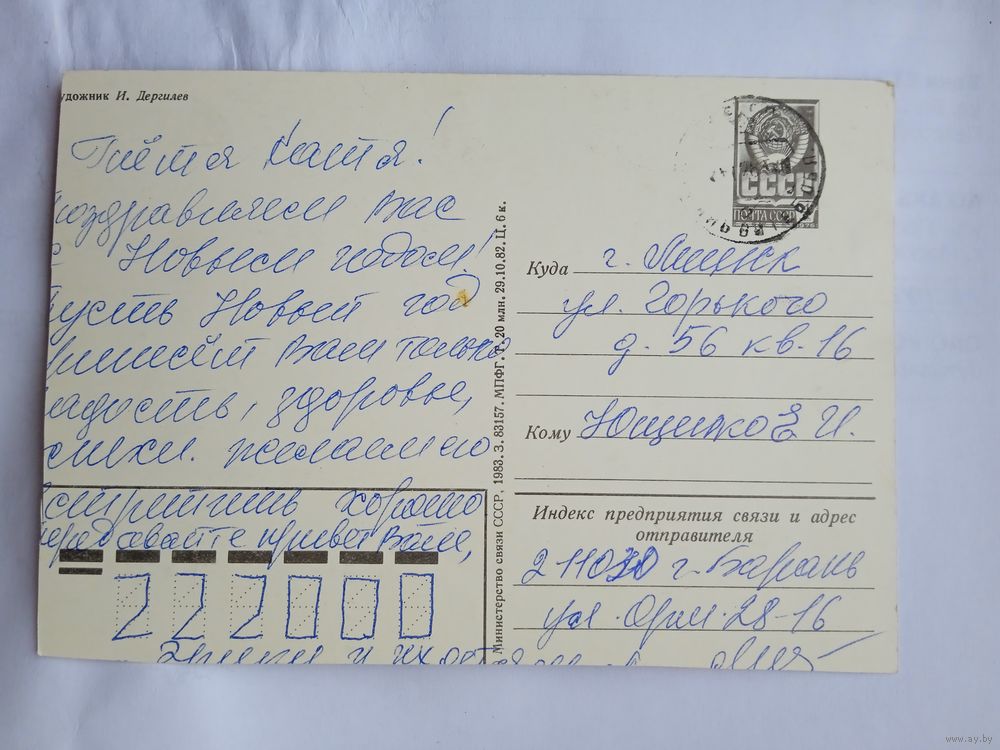 удожник И. Дергилев
Тётя Катя!
поздравляем Вас
с Новым годом!
Пусть Новый год
принесёт Вам только
радость, здоровье,
желаем
хорошо
передавайте привет Вам,
222000
Министерство связи СССР, 1983. З. 83157. МПФГ. Т. 20 млн. 29.10.82. Ц. 6 к.
СССР
ПОЧТА СССР
Куда г. Минск
ул. Горького
д. 56 кв. 16
Кому Ющенко Е И.
Индекс предприятия связи и адрес
отправителя
211030 г. Барань
ул. Орл 28-16
www.ay.by